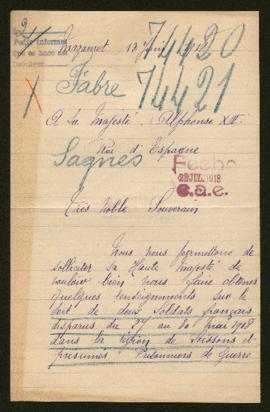 Mazamet 13 Juin 1918
74420
Fabre 74421
A Sa Majesté Alphonse XIII
Roi d'Espagne
Sagnes
Fecho
22 JUL. 1918
C.a.e.
Très Noble Souverain
Nous nous permettons de
solliciter Sa Haute Majesté de
vouloir bien nous faire obtenir
quelques renseignements sur le
sort de deux Soldats français
disparus du 27 au 30 mai 1918
dans la région de Soissons et
présumés Prisonniers de Guerre